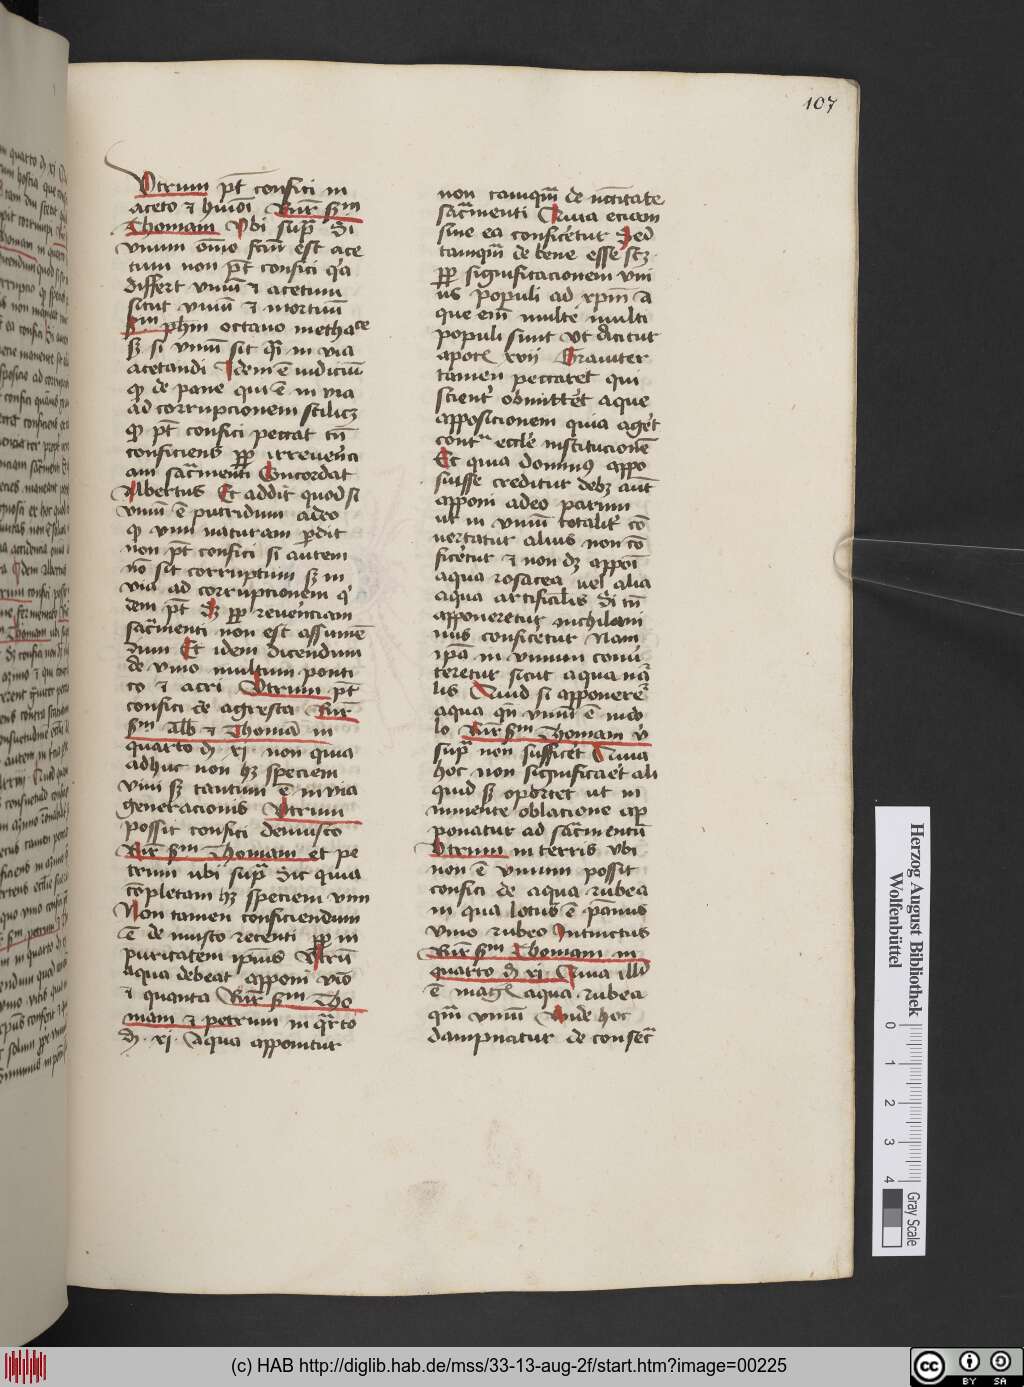 107
Utrum pt̄ confici in
aceto ⁊ hm̄oi Rn̄r s̄m
Thomam Ubi supͣ Si
vinum om̄o fcūm est ace
tum non pt̄ confici qͣa
differt vinū ⁊ acetum
sicut vinū ⁊ mortuū
s̄m ph̄m octauo methace
sꝫ si vinū sit qͣi in via
acetandi Idem ē iudiciū
qͦ de pane qui ē in via
ad corrupcionem scilicꝫ
qͦ pt̄ confici peccat tn̄
conficiens ꝓꝑ irreuen̄ci
am sacͣmenti Concordat
Albertus Et addit quod si
vinū ē putridum adeo
qͦ vini naturam ꝑdit
non pt̄ confici si autem
nō sit corruptum sꝫ in
via ad corrupcionem qͥ
dem pt̄ sꝫ ꝓꝑ reuen̄ciam
sacͣmenti non est assumē
dum Et idem dicendum
de vino multum ponti
co ⁊ acri Utrum pt̄
confici de agresta Rn̄r
s̄m alb̄ ⁊ Thomā in
quarto d̄ xi non quia
adhuc non hꝫ speciem
vini sꝫ tantum ē in via
generacionis Utrum
possit confici de musto
Rn̄r s̄m Thomam et pe
trum ubi supͣ Sic quia
cōpletam hꝫ speciem vini
Non tamen conficiendum
ē de musto recenti ꝓꝑ in
puritatem ip̄ius Utrū
aqua debeat apponi vīo
⁊ quanta Rn̄r s̄m Tho
mam ⁊ petrum in qͣrto
d̄ · xi · Aqua apponitur
non tamqm̄ de nccītate
sacͣmenti Quia eciam
sine ea conficeretur Sed
tamqm̄ de bene esse scꝫ
ꝓꝑ significacionem vni
us populi ad xp̄m A
que em̄ multe multi
populi sunt vt dicitur
apoc̄ xvii Grauiter
tamen peccaret qui
scient̄ obmitteret aque
apposicionem quia ageret
contͣ eccl̄e institucionē
Et quia dominus appo
suisse creditur debꝫ aut̄
apponi adeo parum
ut in vinū totalit̄ cō
uertatur alius non cō
ficeretur ⁊ non dꝫ apponī
aqua rosacea uel alia
aqua artificialis Si tn̄
apponeretur nichilomi
nus conficeretur Nam
ip̄a in vinum conu̇
teretur sicut aqua nāͣ
lis Quid si apponere
aqua qn̄ vinū ē in do
lo Rn̄r s̄m Thomam ū
supͣ non sufficeret Quia
hoc non significaret ali
quid sꝫ oportet ut in
minente oblacione ap
ponatur ad sacͣmentū
Utrum in terris ubi
non ē vinum possit
confici de aqua rubea
in qua lotus ē pānus
vino rubeo Intinctus
Rn̄r s̄m Thomam in
quarto d̄ xi Quia illd̄
ē magꝭ aqua rubea
qm̄ vinū Unde hoc
dampnatur de consecͣ
Herzog August Bibliothek
Wolfenbüttel
0 1 2 3 4
Gray Scale
(c) HAB http://diglib.hab.de/mss/33-13-aug-2f/start.htm?image=00225
cc BY SA